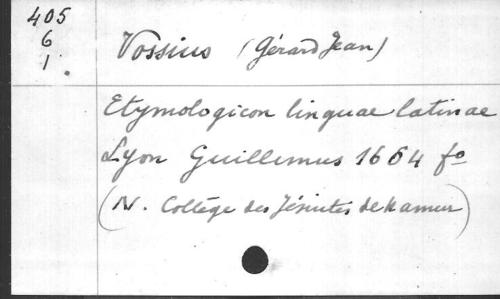 405
6
1.
Vossius (Gérard Jean)
Etymologicon linguae latinae
Lyon Guillimus 1664 fo
(N. Collège des Jésuites de Namur)